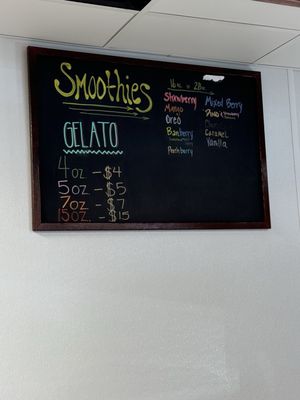 Smoothies
GELATO
4oz - $4
5oz - $5
7oz. - $7
15oz. - $15
Strawberry
Mango
Oreo
Banberry
Peachberry
Mixed Berry
Caramel
Vanilla